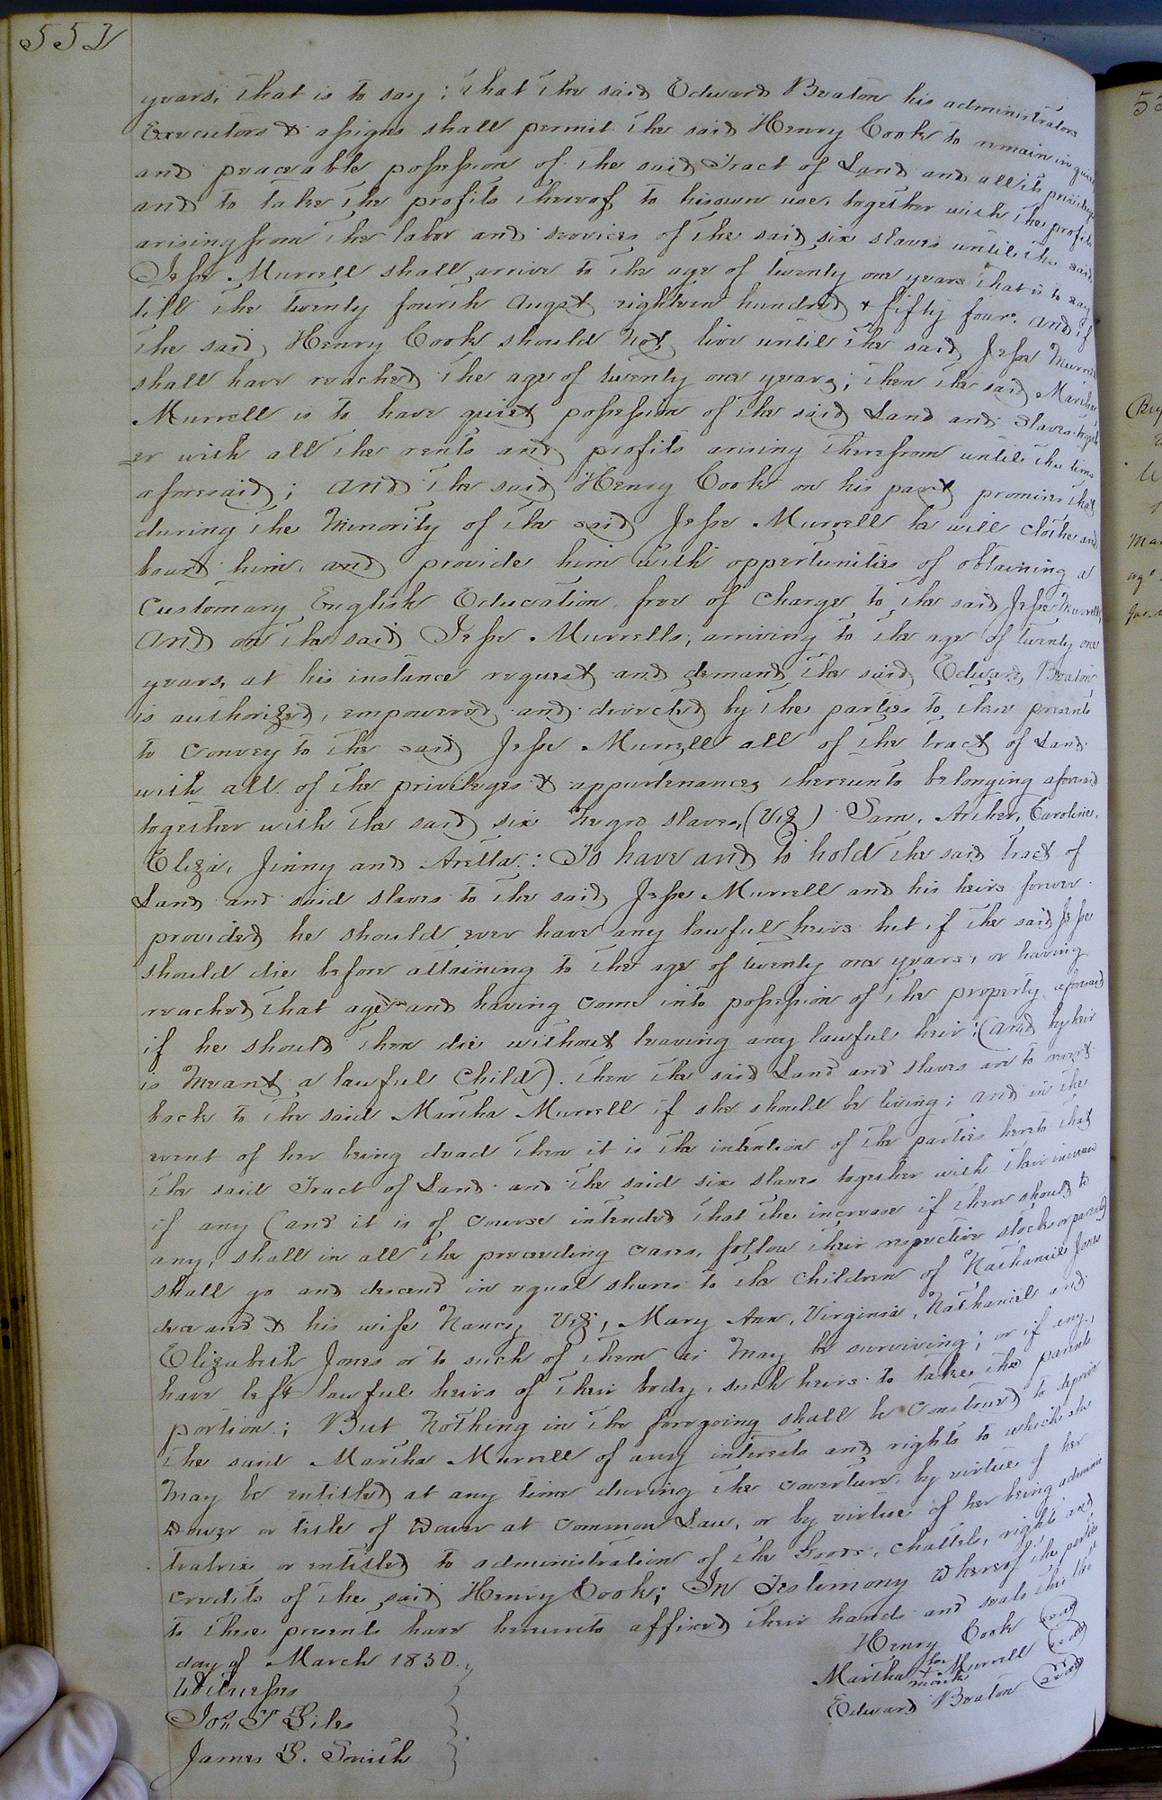 552
years, that is to say; that the said Edward Beaton his administrators
Executors & assigns shall permit the said Henry Cook to remain in quiet
and peaceable possession of the said Tract of Land and all its privileges
and to take the profits thereof to his own use, together with the profits
arising from the labor and services of the said six slaves until the said
Jesse Murrell shall arrive to the age of twenty one years that is to say
till the twenty fourth Augst eighteen hundred & fifty four. and if
the said Henry Cook should not live until the said Jesse Murrell
shall have reached the age of twenty one years; then the said Martha
Murrell is to have quiet possession of the said Land and Slaves togeth
=er with all the rents and profits arising therefrom until the time
aforesaid; and the said Henry Cook on his part promises that
during the Minority of the said Jesse Murrell he will clothe and
board him, and provide him with oppertunities of obtaining a
Customary English Education free of charge to the said Jesse Murrell,
and on the said Jesse Murrells, arriving to the age of twenty one
years, at his instance request and demand the said Edward Beaton
is authorized, empowered and directed by the parties to these presents
to convey to the said Jesse Murrell all of the tract of Land
with all of the privileges & appurtenances thereunto belonging aforesaid
together with the said six Negro slaves, (Viz) Sam, Archer, Caroline,
Eliza, Jinny and Aretta: To have and to hold the said tract of
Land and said slaves to the said Jesse Murrell and his heirs forever
provided he should ever have any lawful heirs but if the said Jesse
should die before attaining to the age of twenty one years, or having
reached that age and having come into possession of the property aforesaid
if he should then die without leaving any lawful heir; (and by heir
is Meant a lawful Child). then the said Land and slaves are to revert
back to the said Martha Murrell if she should be living; and in the
event of her being dead then it is the intention of the parties hereto that
the said Tract of Land and the said six slaves together with their increase
if any (and it is of course intended that the increase if there should be
any, shall in all the preceeding cases, follow their respective stocks or parents)
shall go and descend in equal shares to the children of Nathaniel Jones
decd and & his wife Nancy Viz; Mary Ann, Virginia, Nathaniel and
Elizabeth Jones or to such of them as may be surviving; or if any,
have left lawful heirs of their body, such heirs to take the parents
portion; But Nothing in the foregoing shall be Construed to deprive
the said Martha Murrell of any interests and rights to which she
May be entitled at any time during the coverture by virtue of her
Dower or title of Dower at Common Law, or by virtue of her being adminis
tratrix or entitled to administration of the Goods, Chattels, rights and
credits of the said Henry Cook; In Testimony whereof the parties
to these presents have hereunto affixed their hands and seals this
day of March 1850.
Henry Cook (seal)
her
Martha + Murrell (seal)
mark
Edward Beaton (seal)
Witnesses
Jos T Giles
James G. Smith